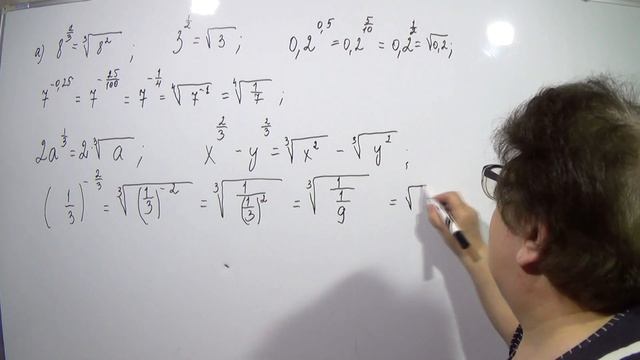 а) 8^(2/3) = ∛(8²) ; 3^(1/2) = √3 ; 0,2^(0,5) = 0,2^(5/10) = 0,2^(1/2) = √0,2 ;
7^(-0,25) = 7^(-25/100) = 7^(-1/4) = ∜(7^(-1)) = ∜(1/7) ;
2a^(1/3) = 2·∛a ; x^(2/3) - y^(2/3) = ∛(x²) - ∛(y²) ;
(1/3)^(-2/3) = ∛((1/3)^(-2)) = ∛(1/(1/3)²) = ∛(1/(1/9)) = √